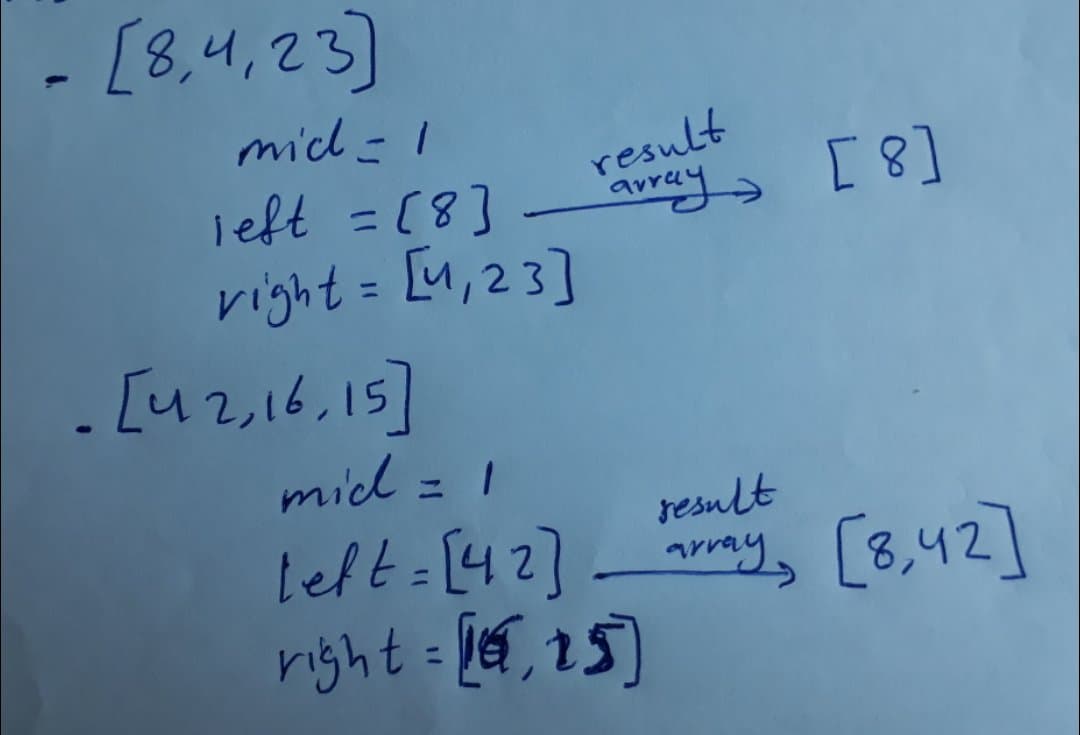 - [8,4,23]
mid = 1
left = [8] result array → [8]
right = [4,23]
- [42,16,15]
mid = 1
left = [42] result array → [8,42]
right = [16,15]